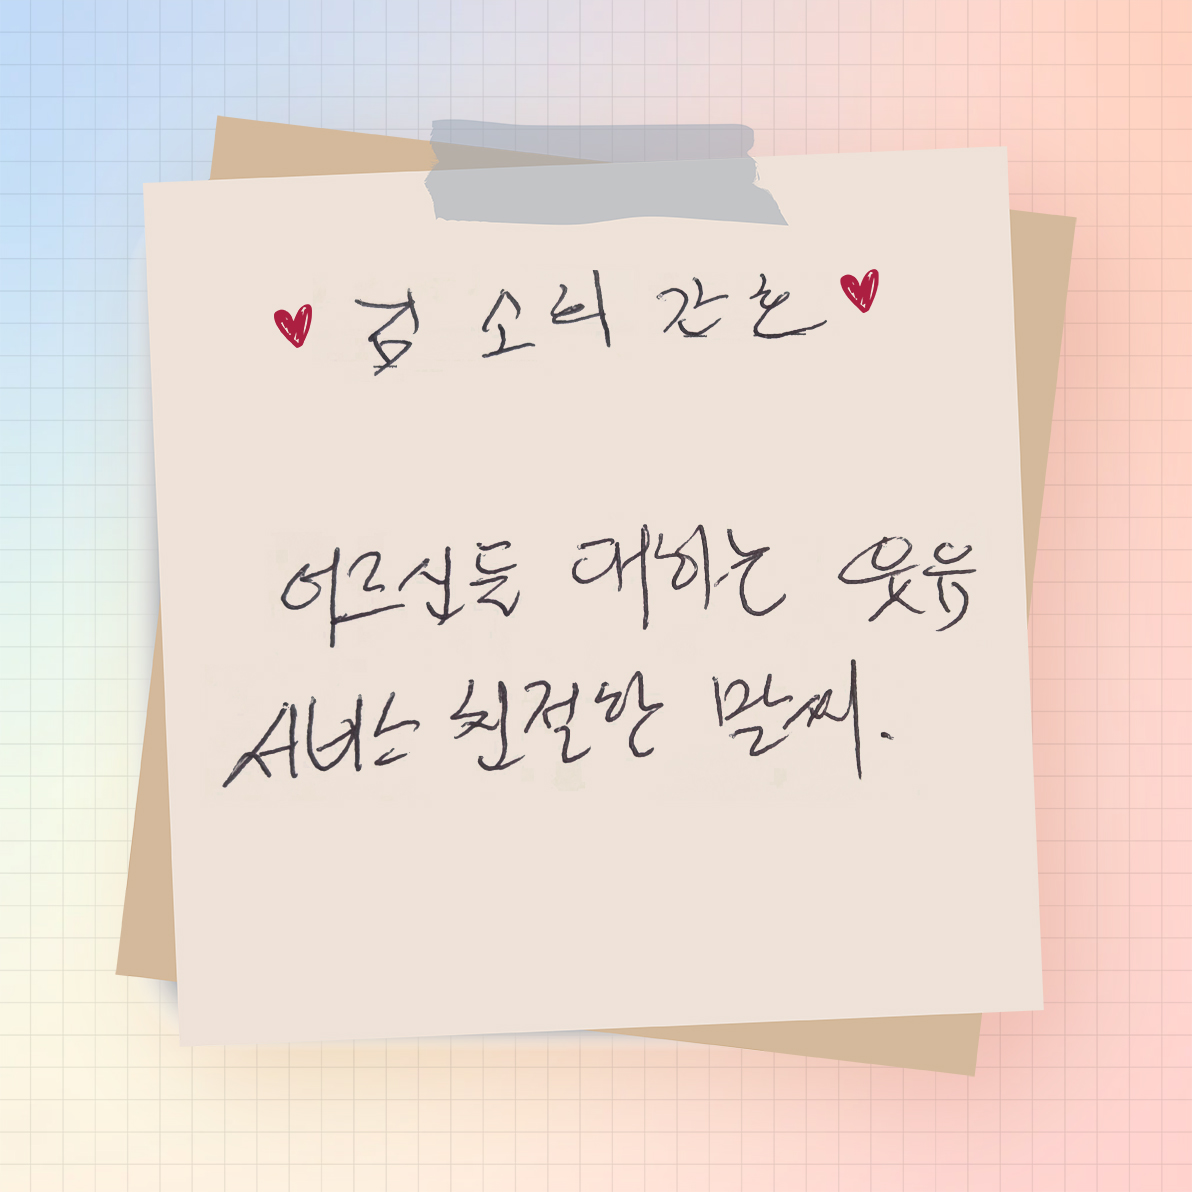 김 소희 간호
어르신들 대하는 웃음
서비스 친절한 말씨.